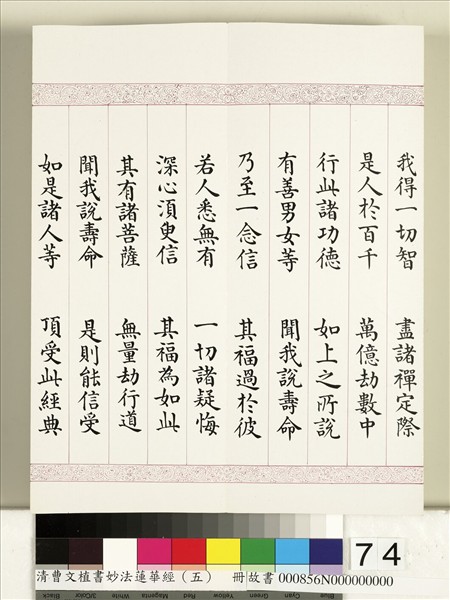 我得一切智 盡諸禪定際
是人於百千 萬億劫數中
行此諸功德 如上之所說
有善男女等 聞我說壽命
乃至一念信 其福過於彼
若人悉無有 一切諸疑悔
深心湏臾信 其福為如此
其有諸菩薩 無量劫行道
聞我說壽命 是則能信受
如是諸人等 頂受此經典
Black
3/Color
White
Magenta
Red
Yellow
Green
Cyan
Blue
74
清曹文植書妙法蓮華經（五） 冊故書 000856N000000000